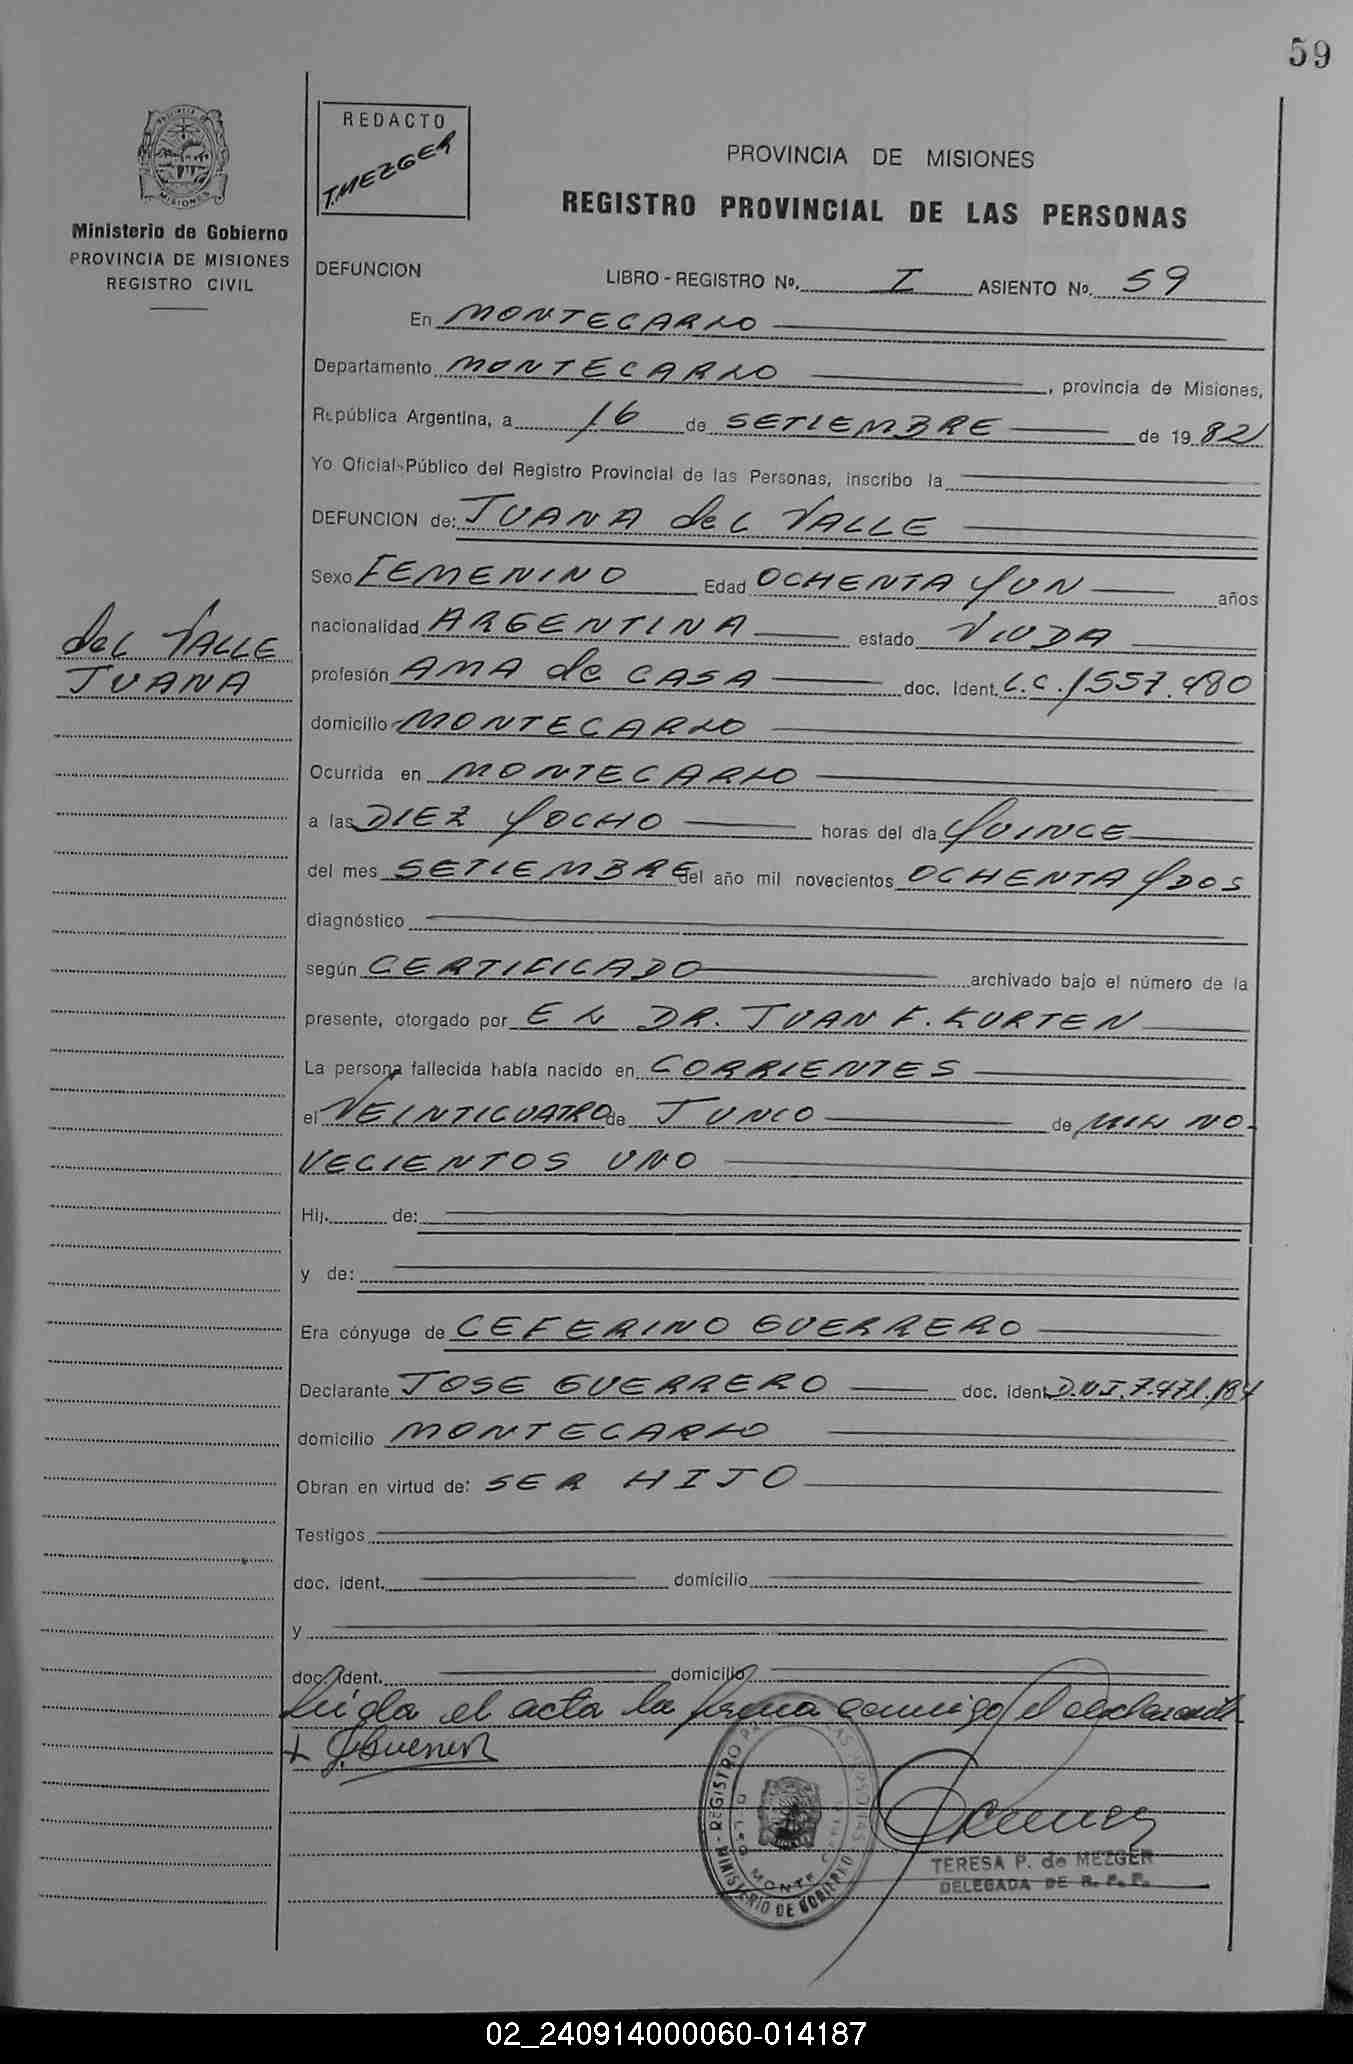 59
REDACTO
T.MEZGER
PROVINCIA DE MISIONES
REGISTRO PROVINCIAL DE LAS PERSONAS
MISIONES
Ministerio de Gobierno
PROVINCIA DE MISIONES
REGISTRO CIVIL
DEFUNCION LIBRO - REGISTRO Nº. I ASIENTO Nº. 59
En MONTECARLO
Departamento MONTECARLO, provincia de Misiones,
República Argentina, a 16 de SETIEMBRE de 19 82
Yo Oficial Público del Registro Provincial de las Personas, inscribo la
DEFUNCION de: JUANA del VALLE
Sexo FEMENINO Edad OCHENTA Y UN años
del VALLE
JUANA
nacionalidad ARGENTINA estado VIUDA
profesión AMA de CASA doc. Ident. L.C. 1557.480
domicilio MONTECARLO
Ocurrida en MONTECARLO
a las DIEZ Y OCHO horas del día QUINCE
del mes SETIEMBRE del año mil novecientos OCHENTA Y DOS
diagnóstico
según CERTIFICADO archivado bajo el número de la
presente, otorgado por EL DR. JUAN F. KURTEN
La persona fallecida había nacido en CORRIENTES
el VEINTICUATRO de JUNIO de MIL NO-
VECIENTOS UNO
Hij. de:
y de:
Era cónyuge de CEFERINO GUERRERO
Declarante JOSE GUERRERO doc. ident. D.N.I. 7.471.184
domicilio MONTECARLO
Obran en virtud de: SER HIJO
Testigos
doc. ident. domicilio
y
doc. ident. domicilio
Leída el acta la firma conmigo el declarante
+ J. Guerrero
MINISTERIO DE GOBIERNO
TERESA P. de MEZGER
DELEGADA DE R. P. P.
02_240914000060-014187